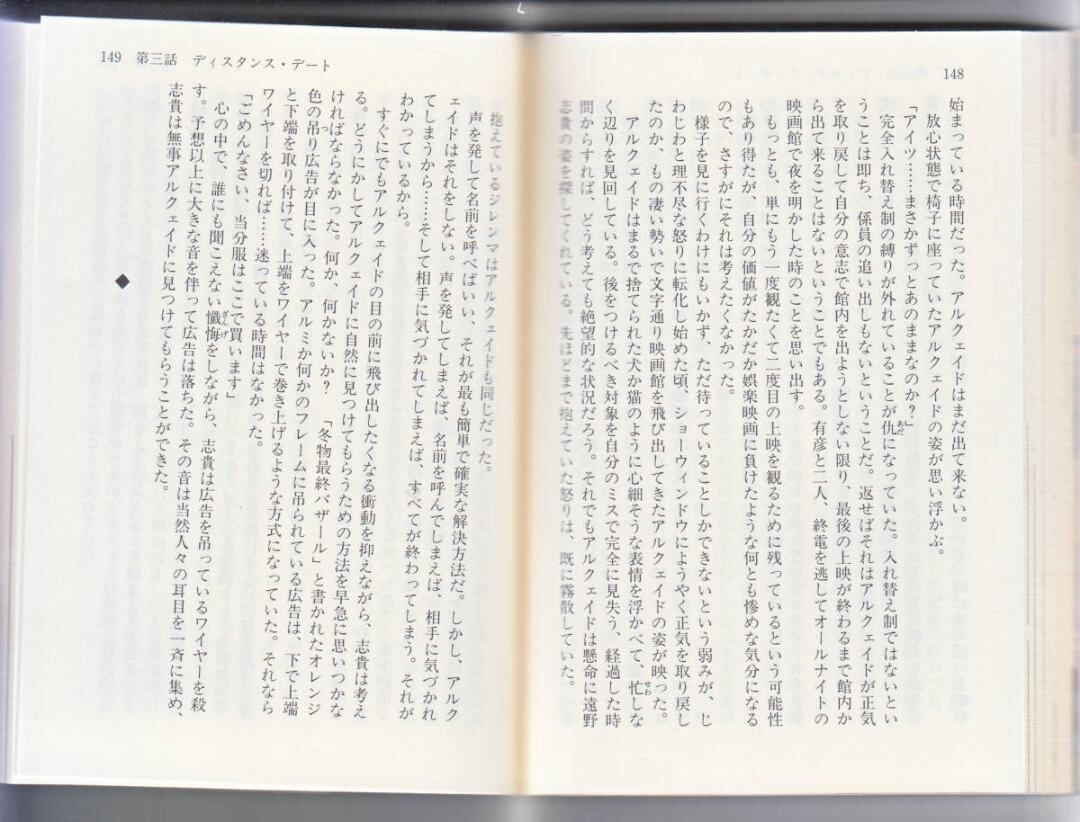 148
始まっている時間だった。アルクェイドはまだ出て来ない。
放心状態で椅子に座っていたアルクェイドの姿が思い浮かぶ。
「アイツ……まさかずっとあのままなのか？」
完全入れ替え制の縛りが外れていることが仇になっていた。入れ替え制ではないとい
うことは即ち、係員の追い出しもないということだ。返せばそれはアルクェイドが正気
を取り戻して自分の意志で館内を出ようとしない限り、最後の上映が終わるまで館内か
ら出て来ることはないということでもある。有彦と二人、終電を逃してオールナイトの
映画館で夜を明かした時のことを思い出す。
もっとも、単にもう一度観たくて二度目の上映を観るために残っているという可能性
もあり得たが、自分の価値がたかだか娯楽映画に負けたような何とも惨めな気分になる
ので、さすがにそれは考えたくなかった。
様子を見に行くわけにもいかず、ただ待っていることしかできないという弱みが、じ
わじわと理不尽な怒りに転化し始めた頃、ショーウィンドウにようやく正気を取り戻し
たのか、もの凄い勢いで文字通り映画館を飛び出してきたアルクェイドの姿が映った。
アルクェイドはまるで捨てられた犬か猫のように心細そうな表情を浮かべて、忙しな
く辺りを見回している。後をつけるべき対象を自分のミスで完全に見失う、経過した時
間からすれば、どう考えても絶望的な状況だろう。それでもアルクェイドは懸命に遠野
志貴の姿を探してくれている。先ほどまで抱えていた怒りは、既に霧散していた。
149 第三話 ディスタンス・デート
抱えているジレンマはアルクェイドも同じだった。
声を発して名前を呼べばいい、それが最も簡単で確実な解決方法だ。しかし、アルク
ェイドはそれをしない。声を発してしまえば、名前を呼んでしまえば、相手に気づかれ
てしまうから……そして相手に気づかれてしまえば、すべてが終わってしまう。それが
わかっているから。
すぐにでもアルクェイドの目の前に飛び出したくなる衝動を抑えながら、志貴は考え
る。どうにかしてアルクェイドに自然に見つけてもらうための方法を早急に思いつかな
ければならなかった。何か、何かないか？　「冬物最終バザール」と書かれたオレンジ
色の吊り広告が目に入った。アルミか何かのフレームに吊られている広告は、下で上端
と下端を取り付けて、上端をワイヤーで巻き上げるような方式になっていた。それなら
ワイヤーを切れば……迷っている時間はなかった。
「ごめんなさい、当分服はここで買います」
心の中で、誰にも聞こえない懺悔をしながら、志貴は広告を吊っているワイヤーを殺
す。予想以上に大きな音を伴って広告は落ちた。その音は当然人々の耳目を一斉に集め、
志貴は無事アルクェイドに見つけてもらうことができた。
◆